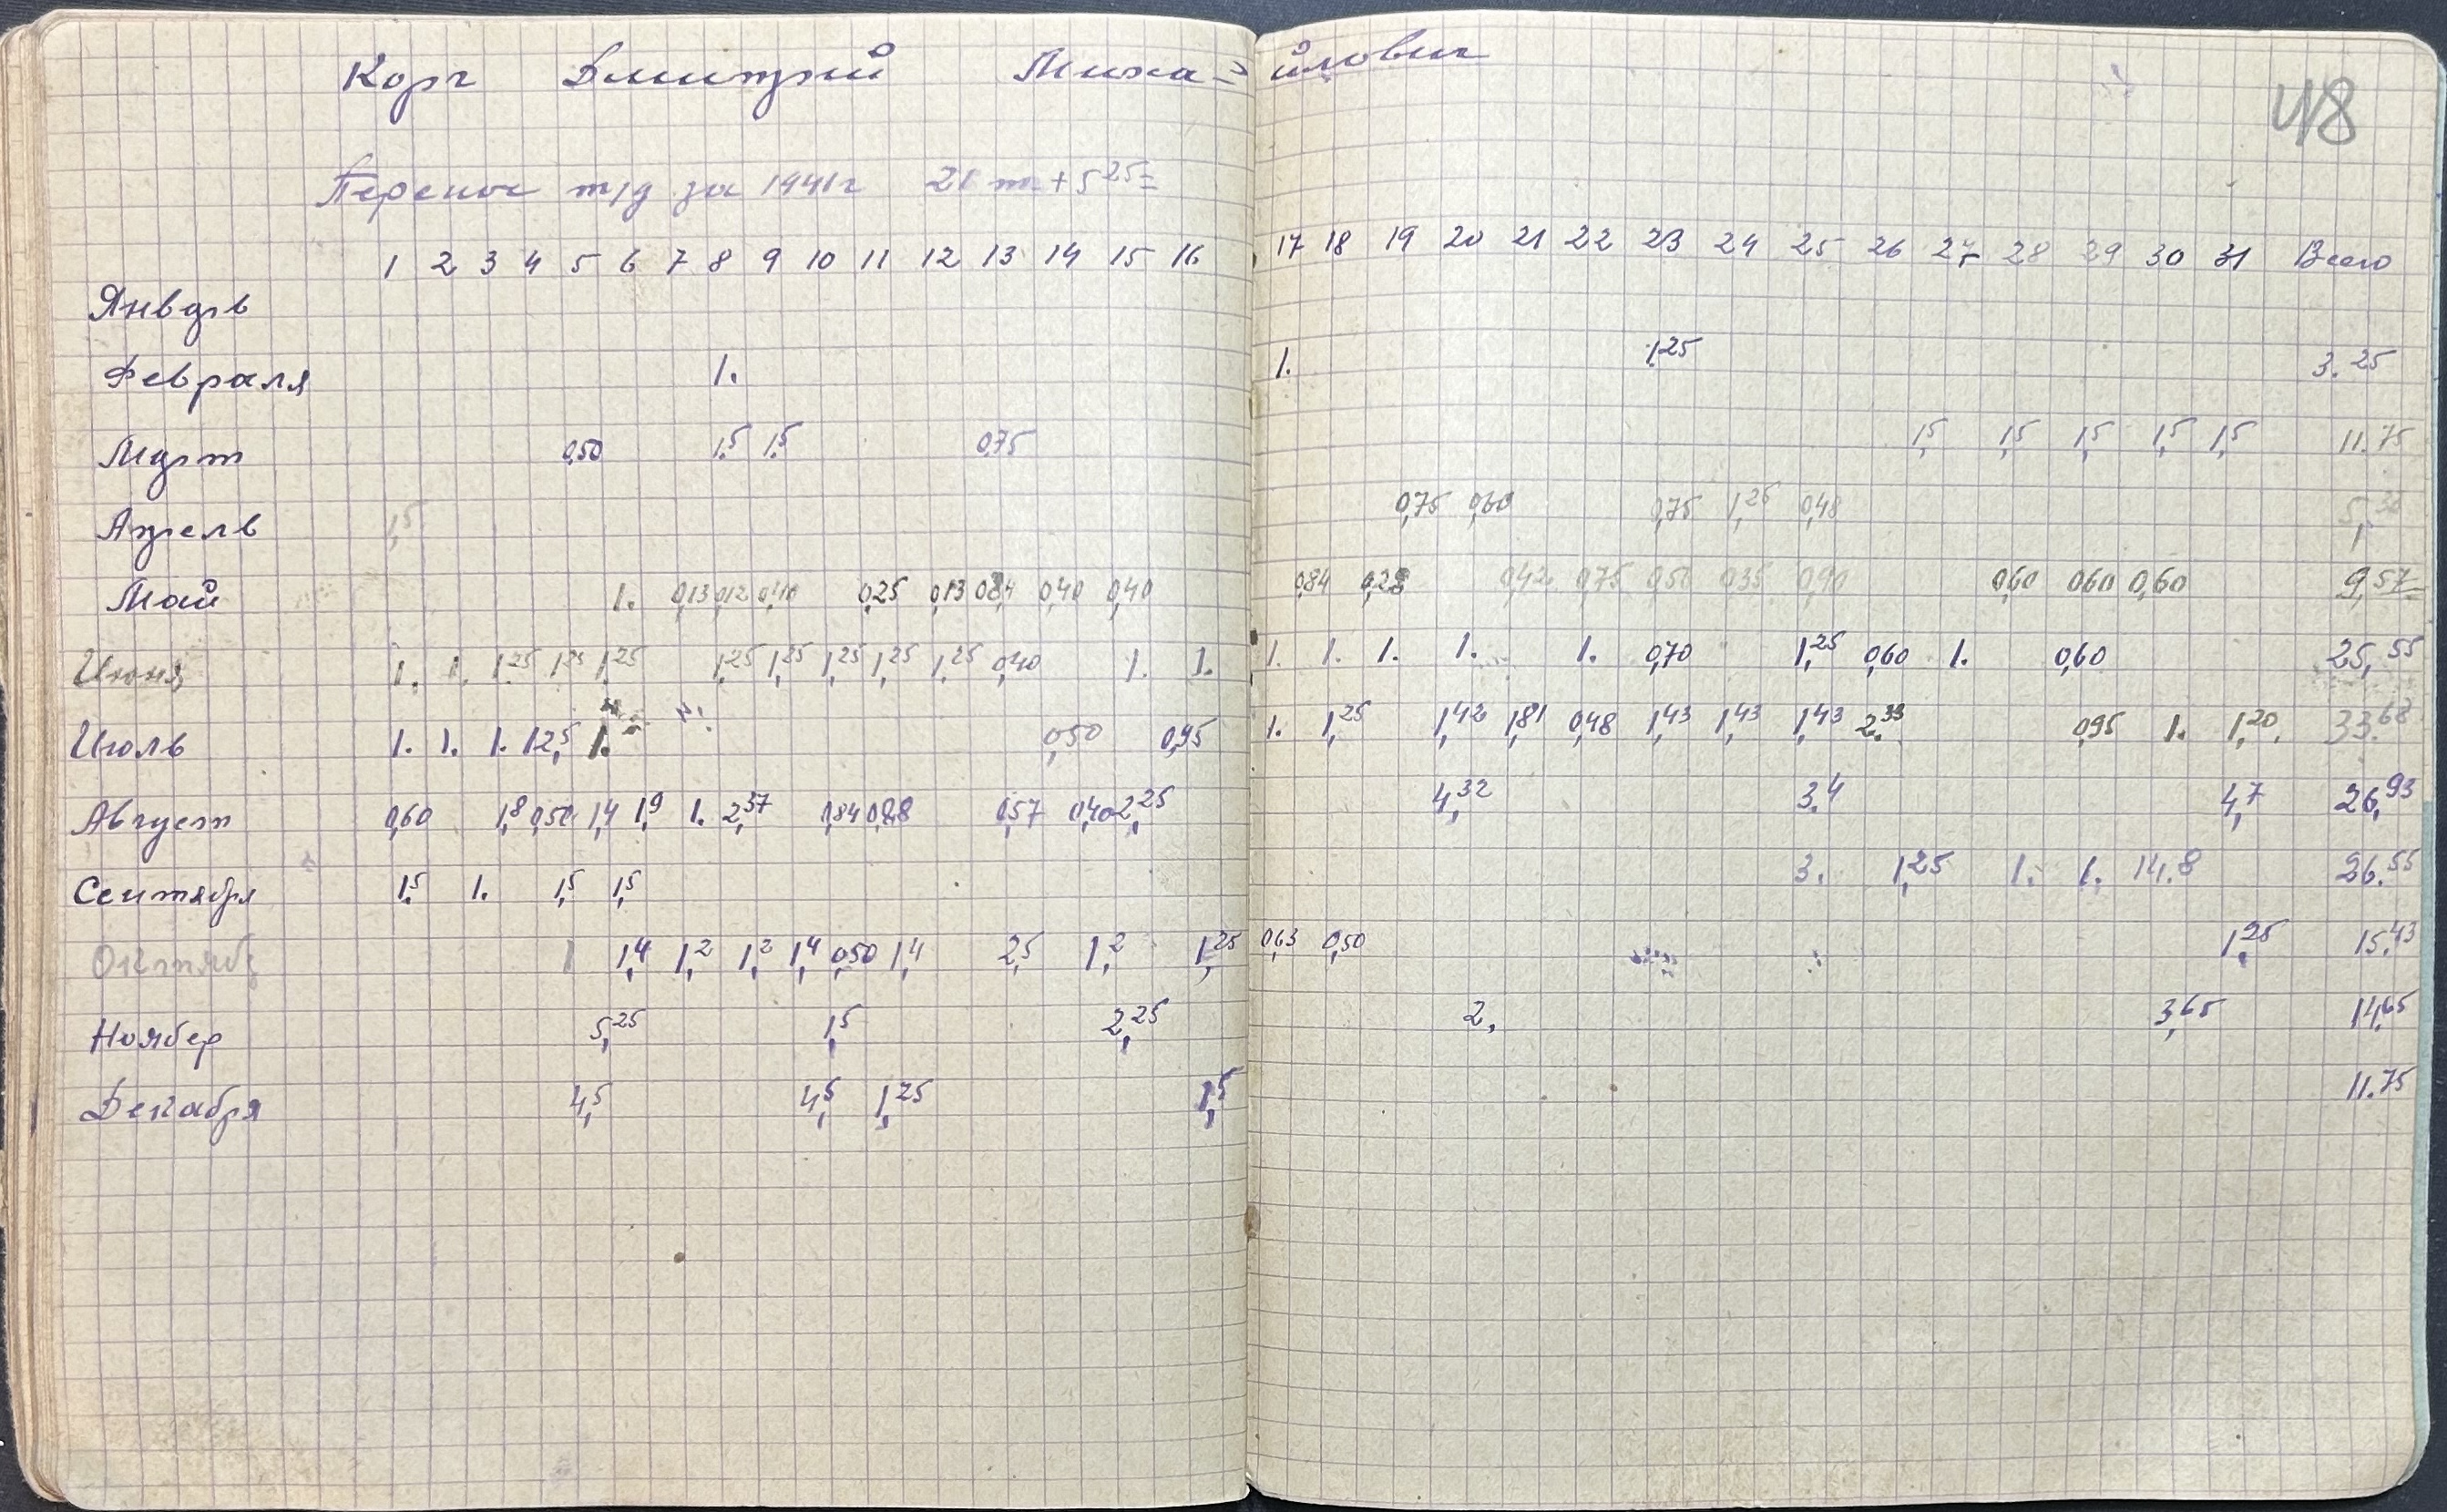 Корг Дмитрий Миха= йлович
48
Перенос т/д за 1941г 21 т + 5 25=
1 2 3 4 5 6 7 8 9 10 11 12 13 14 15 16. 17 18 19 20 21 22 23 24 25 26 27 28 29 30 31 Всего
Январь
Февраля 1. 1. 1.25 3.25
Март 0,50 1.5 1.5 0,75 1,5 1,5 1,5 1,5 1,5 11.75
Апрель 1,5 0,75 0,60 0,75 1,25 0,48
Май 1. 0,13 0,12 0,40 0,25 0,13 0,84 0,40 0,40 0,84 0,28 0,42 0,75 0,50 0,35 0,90 0,60 0,60 0,60 9,57=
Июня 1. 1. 1.25 1.25 1,25 1,25 1,25 1,25 1,25 1,25 0,40 1. 1. 1. 1. 1. 1. 1. 0,70 1,25 0,60 1. 0,60 25,55
Июль 1. 1. 1. 1 2,5 1. 0,50 0,95 1. 1,25 1,42 1,81 0,48 1,43 1,43 1,43 2.33 0,95 1. 1,20. 33.68
Август 0,60 1,8 0,50 1,4 1,9 1. 2,37 0,84 0,88 0,57 0,40 2,25 4,32 3.4 4,7 26,93
Сентября 1.5 1. 1,5 1,5 3. 1,25 1. 1. 14.8 26.55
Октябр 1 1,4 1,2 1,2 1,4 0,50 1,4 2,5 1,2 1,25 0,63 0,50 1,25 15.43
Ноябер 5,25 1,5 2,25 2, 3,65 14,65
Декабря 4,5 4,5 1,25 1,5 11.75